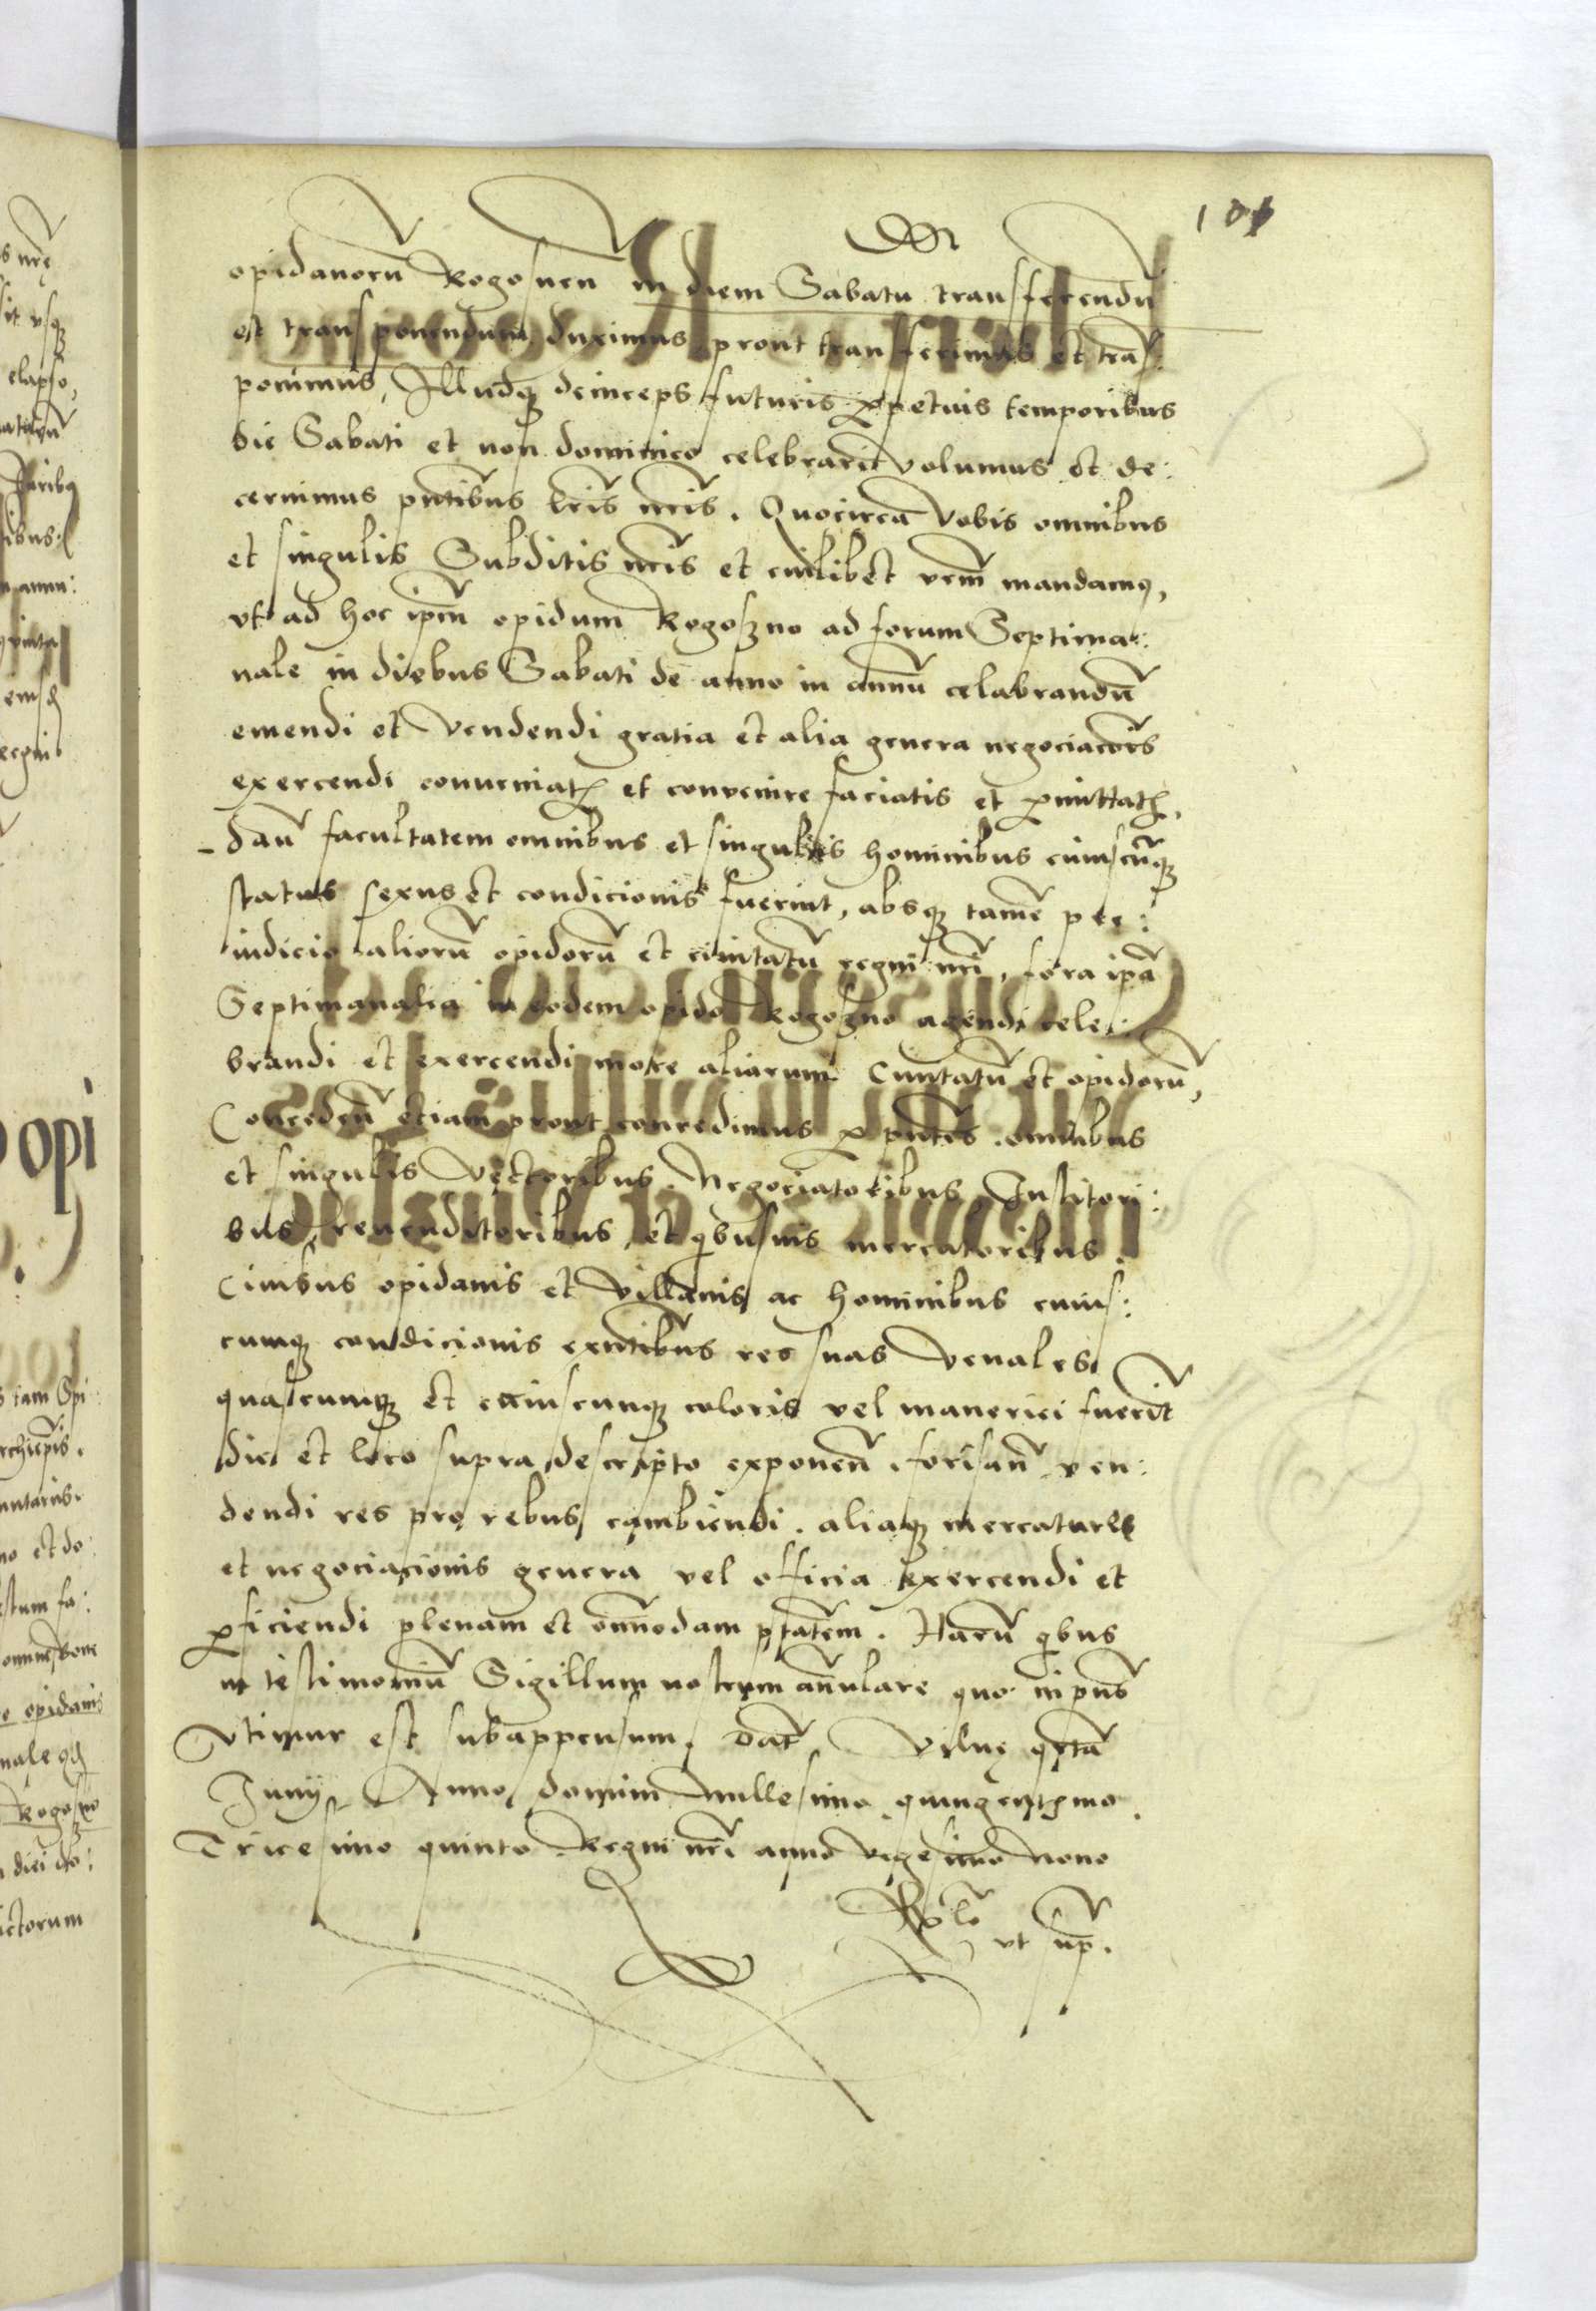 101
opidanorũ Rogosnen̄ in diem Sabatu transferendũ
et transponendum duximus prout transferimus et trãs:
ponimus, Illudq̃ deinceps futuris ꝑpetuis temporibus
die Sabati et non dominico celebrari volumus et de:
cernimus pñtibus lrĩs nrĩs. Quocirca vobis omnibus
et singulis Subditis nrĩs et cuilibet vrm̃ mandamus,
vt ad hoc ipm̃ opidum Rogoszno ad forum Septima:
nale in diebus Sabati de anno in annũ celabrandũ
emendi et vendendi gratia et alia genera negociacõis
exercendi conueniatis et conuenire faciatis et ꝑmittatis,
dañ facultatem omnibus et singulis hominibus cuiuscũq̃
status sexus et condicionis fuerint, absq̃ tamẽ pre:
iudicio aliorũ opidorũ et ciuitatũ regni nrĩ, fora ipã
Septimanalia in eodem opido Rogoszno agendi cele:
brandi et exercendi more aliarum Ciuitatũ et opidorũ,
Conceden̄ eciam prout concedimus ꝑ pñtes. omnibus
et singulis Vectoribus. Negociatoribus Institori:
bus, reuenditoribus, et qibusuis mercatoribus.
Ciuibus opidanis et villanis ac hominibus cuius:
cumq̃ condicionis exñtibus res suas venales
quascumq̃ et cuiuscunq̃ coloris vel maneriei fuerĩt
die et loco supra descripto exponen̄. forisañ ven:
dendi res pro rebus cambiendi. aliaq̃ mercature
et negociacionis genera vel officia exercendi et
ꝑficiendi plenam et omĩmodam ptãtem. Harũ qibus
in testimoniũ Sigillum nostrum anulare quo in pñs
vtimur est subappensum. Dat̃ Vilne qrta
Junij Anno domini millesimo quingentesimo
Tricesimo quinto Regni nrĩ anno vigesimo nono
Rel̃o
vt sup̃.